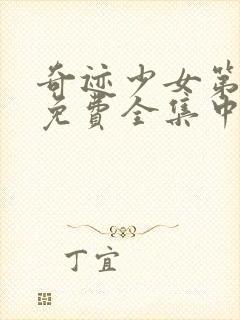 奇迹少女第
免费全集中
丁宜